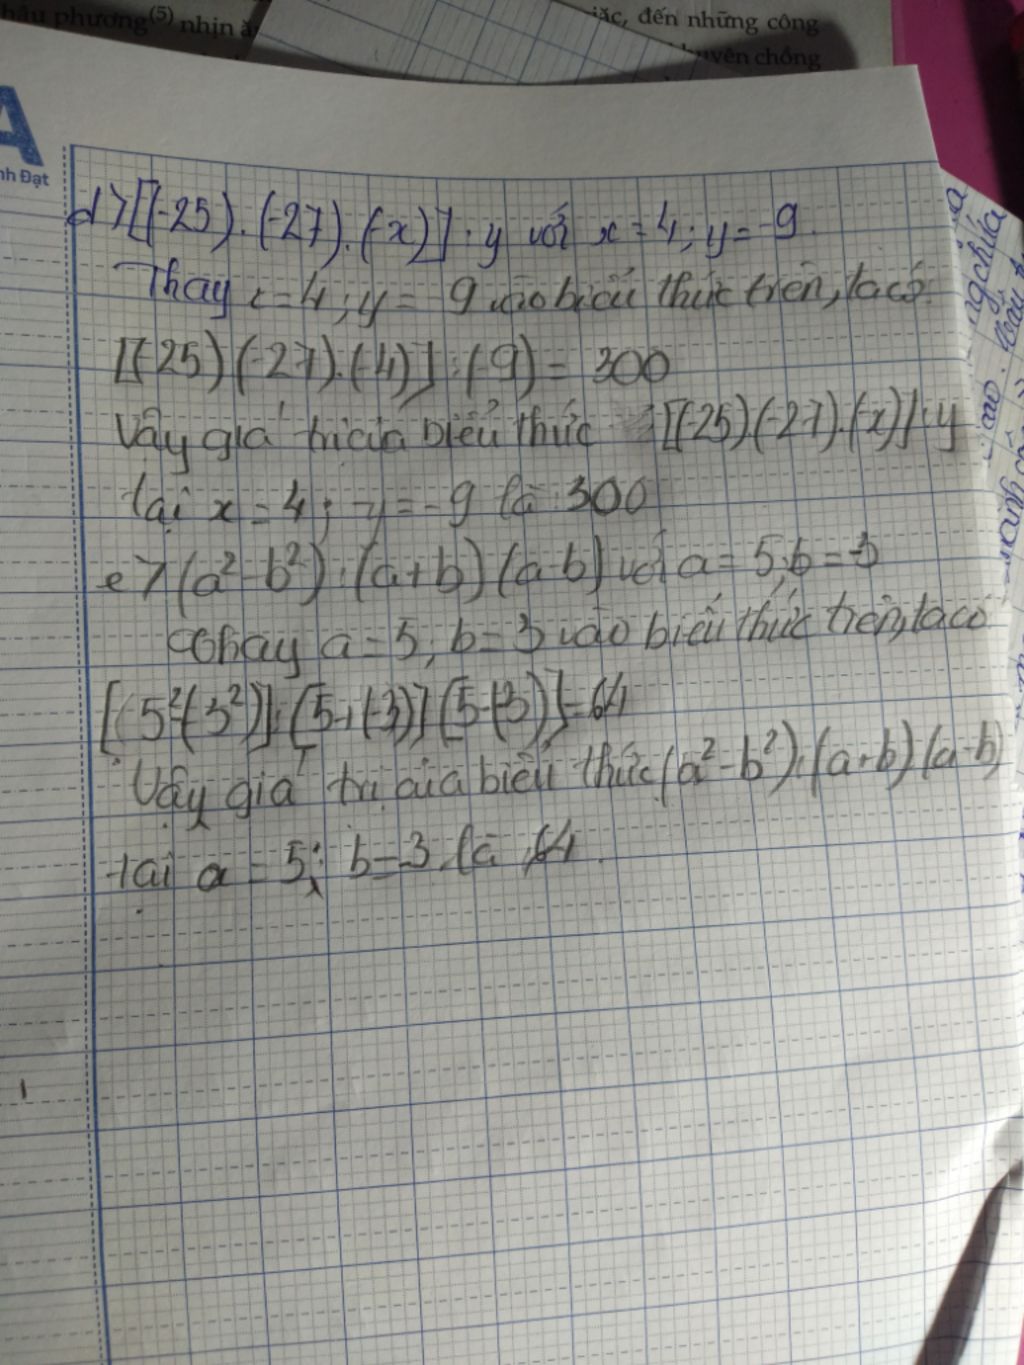 hậu phương(5) nhịn ă
iặc, đến những công
uyên chồng
A
nh Đạt
d) [(-25).(-27).(-x)] : y với x = 4; y = -9.
Thay x = 4; y = -9 vào biểu thức trên, ta có:
[(-25)(-27).(-4)] : (-9) = 300
Vậy giá trị của biểu thức [(-25)(-27).(-x)] : y
tại x = 4; y = -9 là 300
e) (a²-b²) : (a+b)(a-b) với a = 5; b = -3
Thay a = 5; b = -3 vào biểu thức trên, ta có
[(5²-(-3²)] : [5+(-3)][5-(-3)] = 64
Vậy giá trị của biểu thức (a²-b²) : (a+b)(a-b)
tại a = 5; b = -3 là 64.
nghĩa